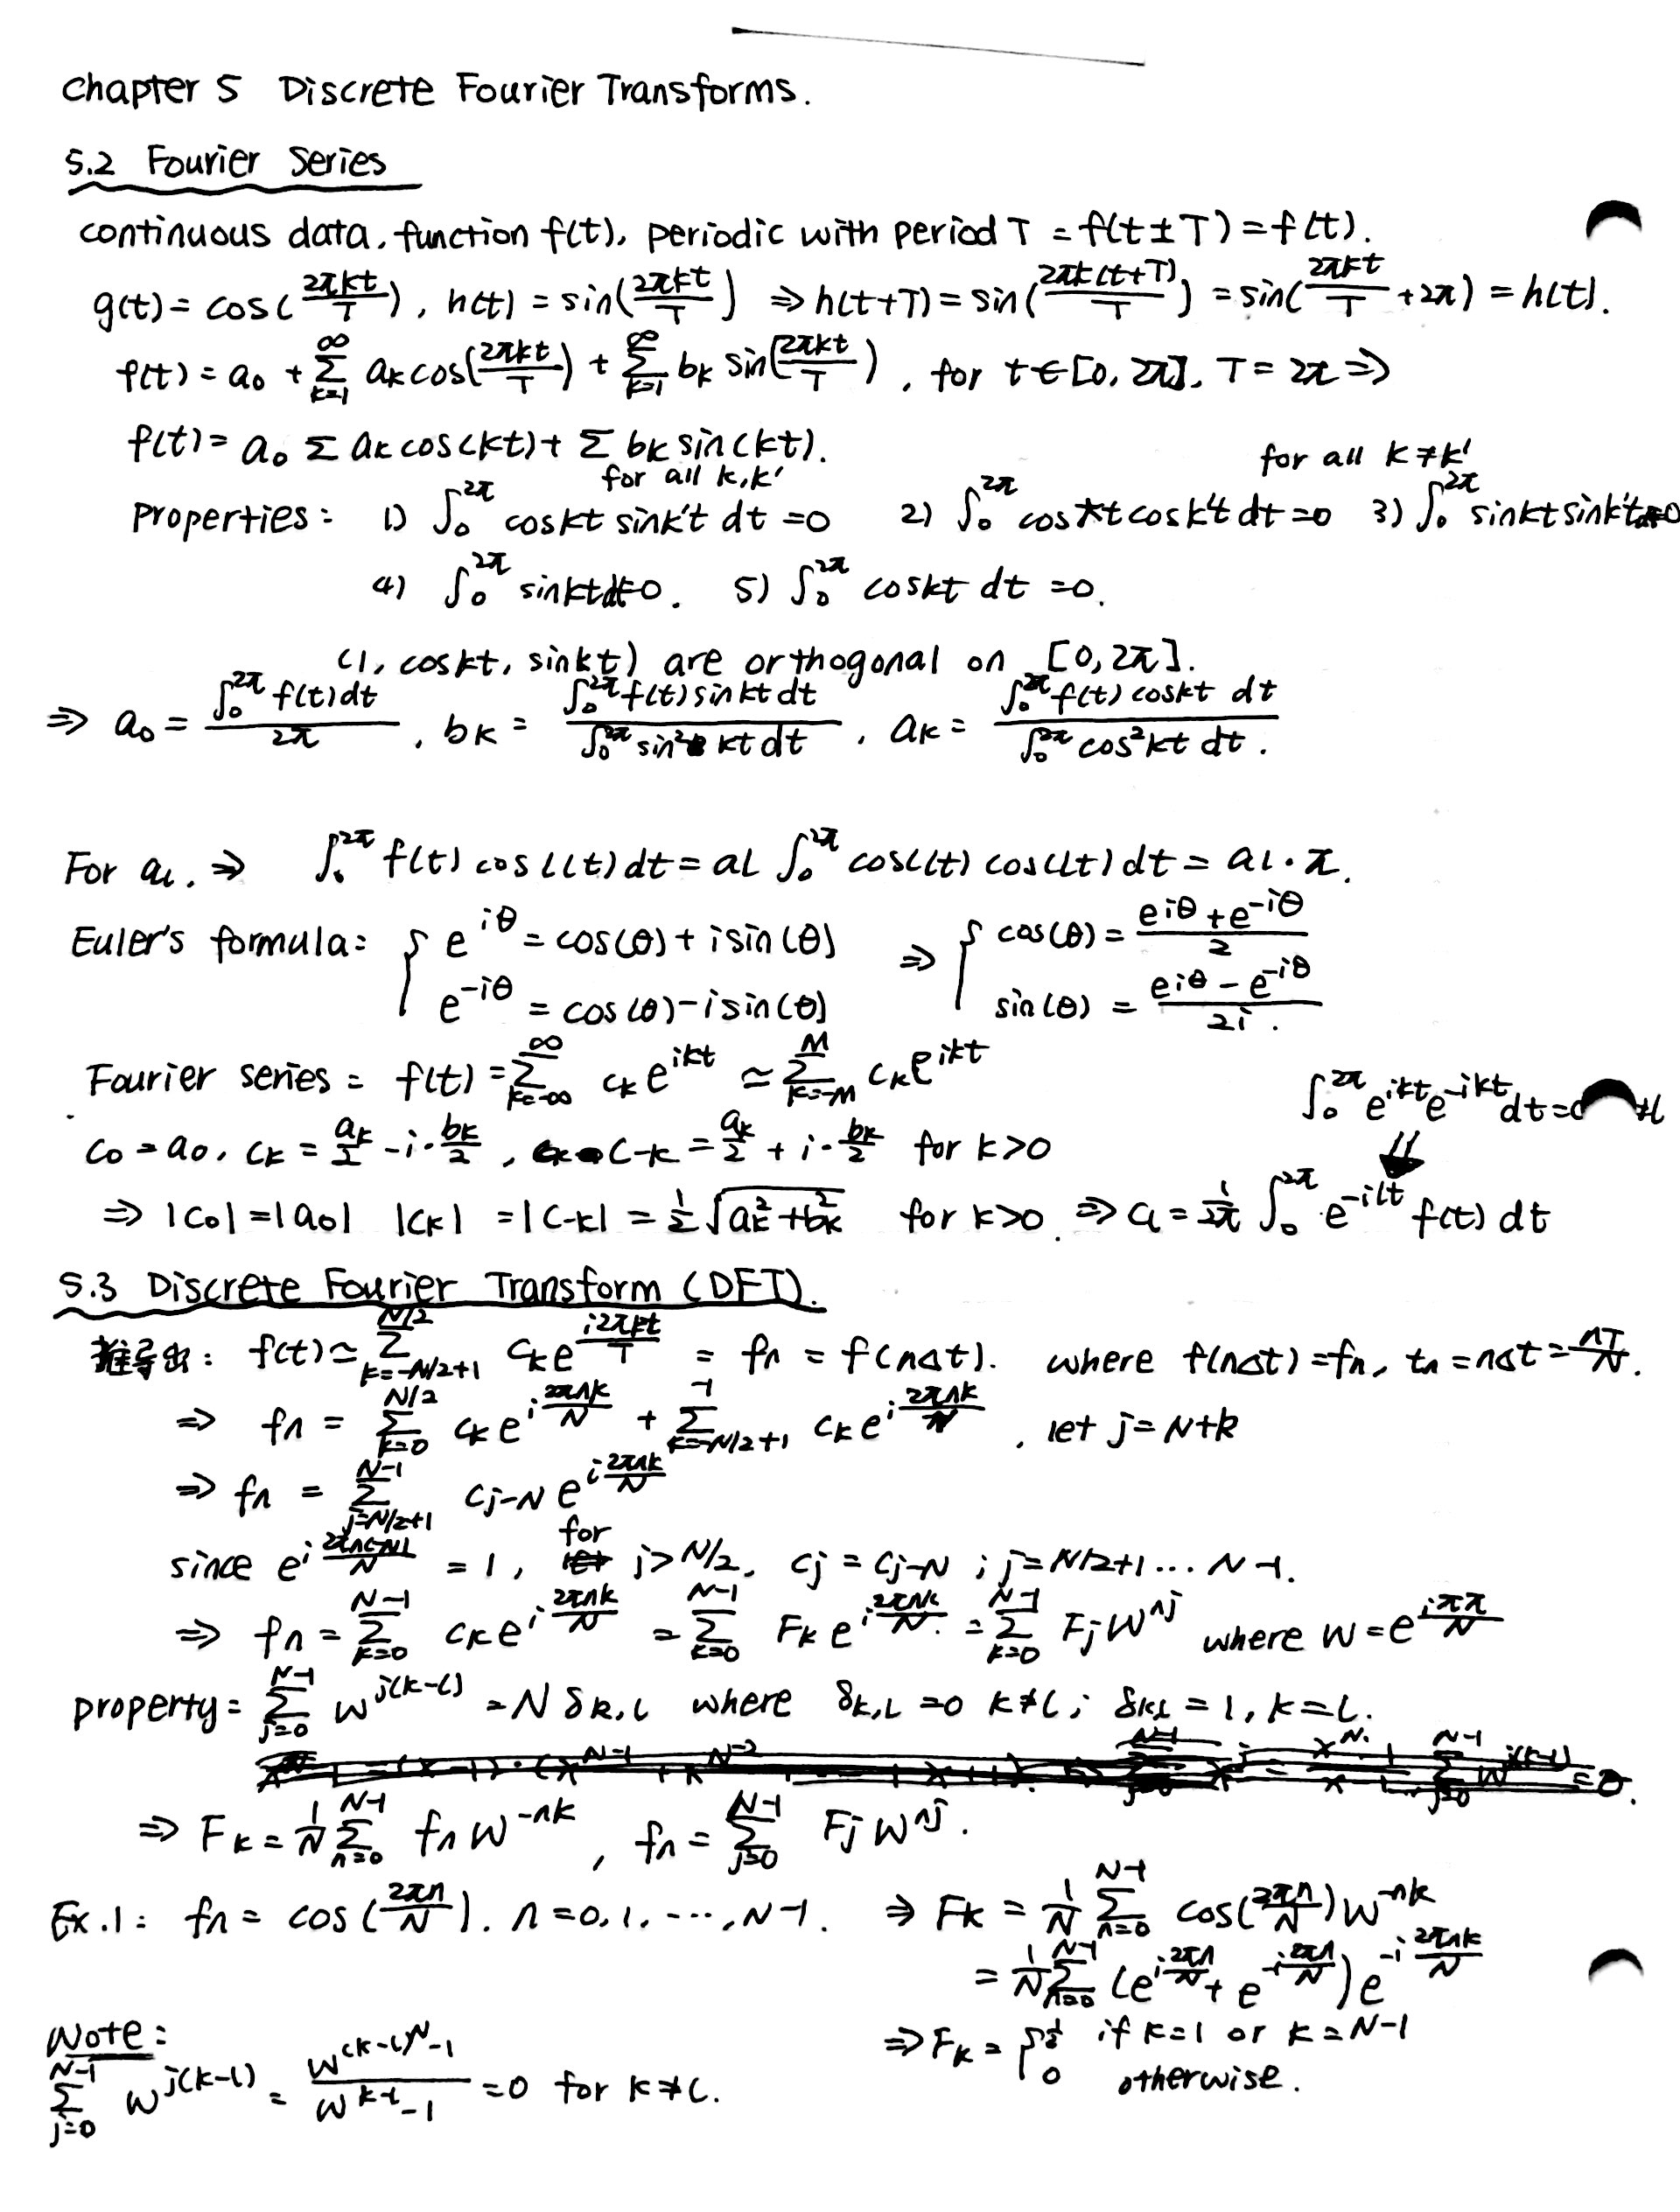 Chapter 5 Discrete Fourier Transforms.
5.2 Fourier Series
continuous data, function f(t), periodic with period T = f(t±T) = f(t).
g(t) = cos(2πkt/T), h(t) = sin(2πkt/T) ⇒ h(t+T) = sin(2πk(t+T)/T) = sin(2πkt/T + 2π) = h(t).
f(t) = a₀ + ∑_{k=1}^{∞} a_k cos(2πkt/T) + ∑_{k=1}^{∞} b_k sin(2πkt/T), for t∈[0, 2π], T = 2π ⇒
f(t) = a₀ ∑ a_k cos(kt) + ∑ b_k sin(kt).
for all k,k' for all k≠k'
Properties: 1) ∫₀^{2π} coskt sink't dt = 0 2) ∫₀^{2π} coskt cosk't dt = 0 3) ∫₀^{2π} sinkt sink't dt = 0
4) ∫₀^{2π} sinkt dt = 0. 5) ∫₀^{2π} coskt dt = 0.
(1, coskt, sinkt) are orthogonal on [0, 2π].
⇒ a₀ = ∫₀^{2π} f(t)dt / 2π, b_k = ∫₀^{2π} f(t) sinkt dt / ∫₀^{2π} sin²kt dt, a_k = ∫₀^{2π} f(t) coskt dt / ∫₀^{2π} cos²kt dt.
For a_l, ⇒ ∫₀^{2π} f(t) cos l(t) dt = a_l ∫₀^{2π} cos(lt) cos(lt) dt = a_l · π.
Euler's formula: { e^{iθ} = cos(θ) + i sin(θ) ⇒ { cos(θ) = (e^{iθ} + e^{-iθ})/2
e^{-iθ} = cos(θ) - i sin(θ) sin(θ) = (e^{iθ} - e^{-iθ})/2i.
Fourier series: f(t) = ∑_{k=-∞}^{∞} c_k e^{ikt} ≃ ∑_{k=-M}^{M} c_k e^{ikt}
∫₀^{2π} e^{ikt} e^{-ikt} dt = ≠l
c₀ = a₀, c_k = a_k/2 - i·b_k/2, c_{-k} = a_k/2 + i·b_k/2 for k>0
⇒ |c₀| = |a₀| |c_k| = |c_{-k}| = ½√(a_k² + b_k²) for k>0. ⇒ c_l = 1/2π ∫₀^{2π} e^{-ilt} f(t) dt
5.3 Discrete Fourier Transform (DFT).
推导出: f(t) ≃ ∑_{k=-N/2+1}^{N/2} c_k e^{i2πkt/T} = f_n = f(nΔt). where f(nΔt) = f_n, t_n = nΔt = nT/N.
⇒ f_n = ∑_{k=0}^{N/2} c_k e^{i 2πnk/N} + ∑_{k=-N/2+1}^{-1} c_k e^{i 2πnk/N}, let j = N+k
⇒ f_n = ∑_{j=N/2+1}^{N-1} c_{j-N} e^{i 2πnk/N}
since e^{i 2πn(-N)/N} = 1, for j>N/2, c_j = c_{j-N}; j = N/2+1 ... N-1.
⇒ f_n = ∑_{k=0}^{N-1} c_k e^{i 2πnk/N} = ∑_{k=0}^{N-1} F_k e^{i 2πnk/N} = ∑_{k=0}^{N-1} F_j W^{nj} where W = e^{iππ/N}
property: ∑_{j=0}^{N-1} W^{j(k-l)} = N δ_{k,l} where δ_{k,l} = 0 k≠l; δ_{kl} = 1, k=l.
⇒ F_k = 1/N ∑_{n=0}^{N-1} f_n W^{-nk}, f_n = ∑_{j=0}^{N-1} F_j W^{nj}.
Ex.1: f_n = cos(2πn/N). n = 0,1,...,N-1. ⇒ F_k = 1/N ∑_{n=0}^{N-1} cos(2πn/N) W^{-nk}
= 1/N ∑_{n=0}^{N-1} (e^{i 2πn/N} + e^{-i 2πn/N}) e^{-i 2πnk/N}
⇒ F_k = { ½ if k=1 or k=N-1
0 otherwise.
Note:
∑_{j=0}^{N-1} W^{j(k-l)} = (W^{(k-l)N} - 1)/(W^{k-l} - 1) = 0 for k≠l.